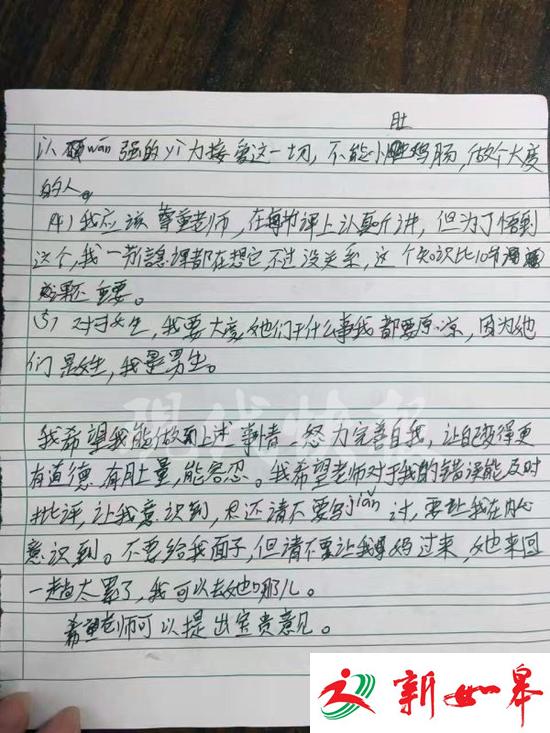 肚
以顽wán强的yì力接受这一切，不能小鸡肠，做个大度
的人。
(4)我应该尊重老师，在每节课上认真听讲，但为了悟到
这个，我一节课都在想它，不过没关系，这个知识比10节课
还重要。
(5)对于女生，我要大度，她们干什么事我都要原凉，因为她
们是女生，我是男生。
现代快报
我希望我能做到上述事情，努力完善自我，让自己变得更
有道德有肚量，能容忍。我希望老师对于我的错误能及时
批评，让我意识到，但还请不要写jiǎn讨，要让我在内心
意识到。不要给我面子，但请不要让我妈过来，她来回
一趟太累了，我可以去她哪儿。
希望老师可以提出宝贵意见。
新如皋